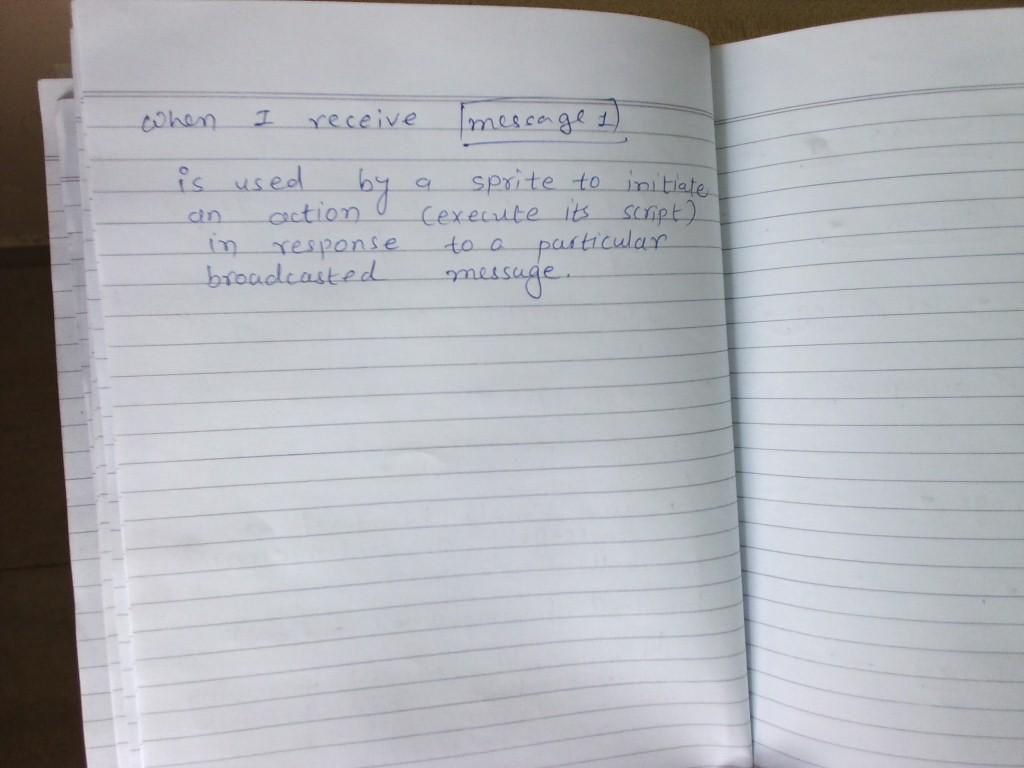 when I receive message 1
is used by a sprite to initiate
an action (execute its script)
in response to a particular
broadcasted message.